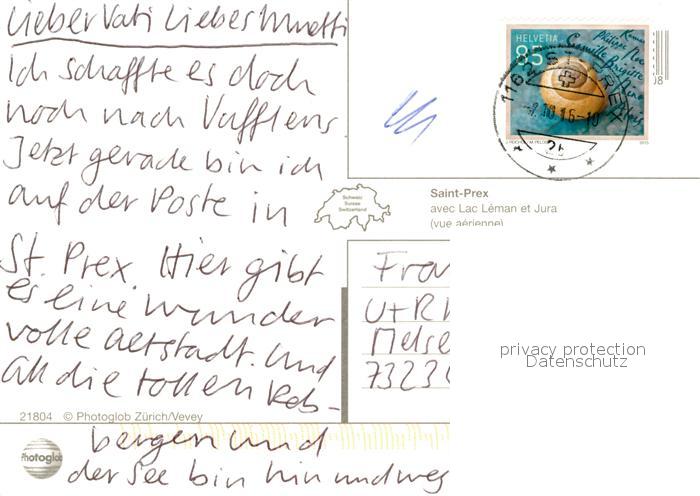 Lieber Vati Liebes Muetti
Ich schaffte es doch
noch nach Vufflens
Jetzt gerade bin ich
auf der Poste in
St. Prex. Hier gibt
es eine wunder
volle Altstadt. Und
all die tollen Reb-
bergen und
der See bin hin und weg
21804 © Photoglob Zürich/Vevey
Photoglob
HELVETIA
85
1162 ST-PREX
Schweiz
Suisse
Switzerland
Saint-Prex
avec Lac Léman et Jura
(vue aérienne)
Fra
U+R
Melse
7323
privacy protection
Datenschutz